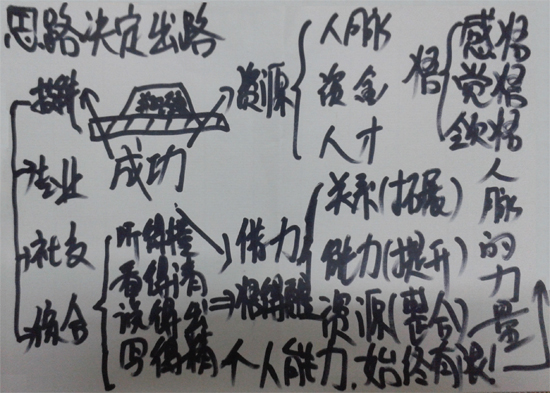 思路决定出路
技能
专业
社交
综合
成功
资源
人脉
资金
人才
悟
感悟
觉悟
领悟
听得懂
看得清
说得出
写得精
借力
想得醒
关系(拓展)
能力(提升)
资源(整合)
人脉的力量
个人能力,始终有限!